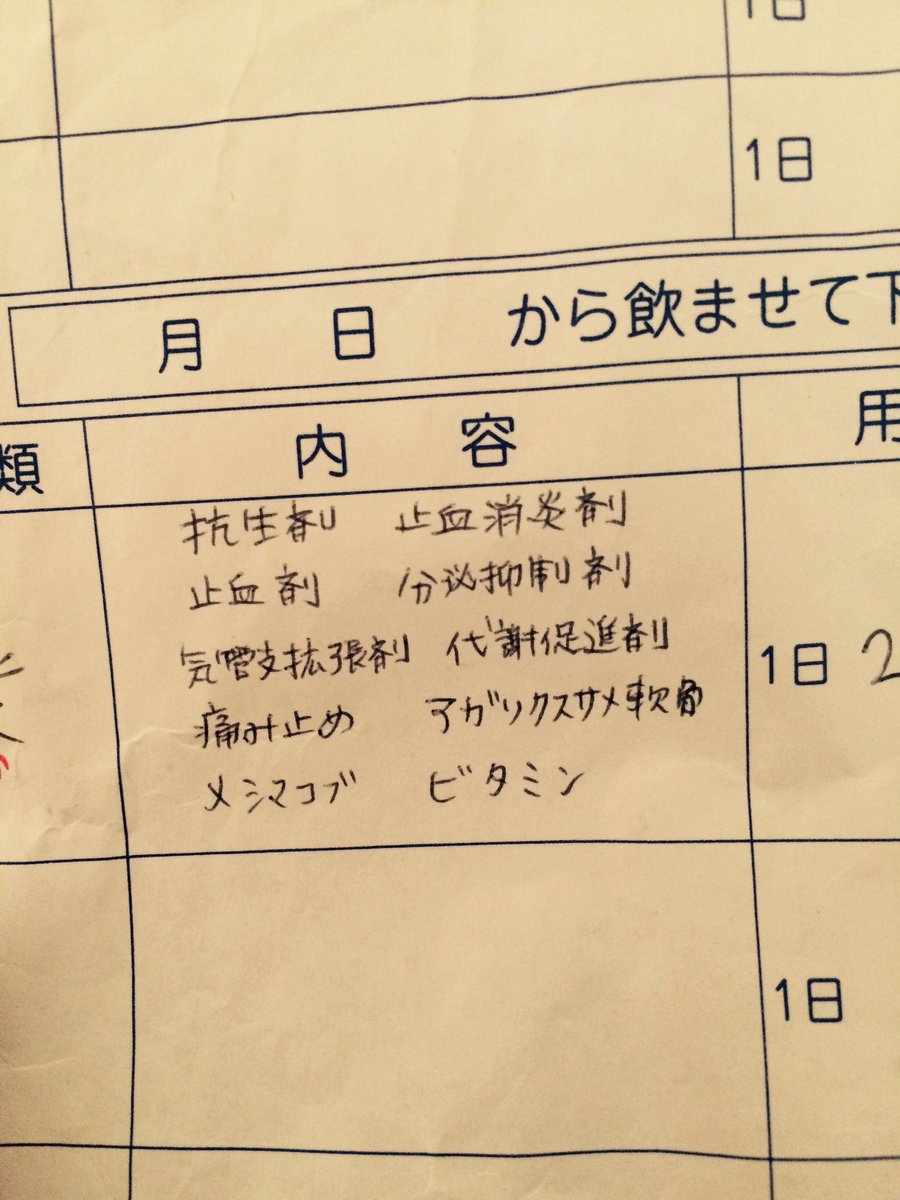 1日
1日
月 日 から飲ませて下
類 内 容 用
抗生剤 止血消炎剤
止血剤 分泌抑制剤
気管支拡張剤 代謝促進剤
痛み止め アガリクスサメ軟骨
メシマコブ ビタミン
1日 2
1日